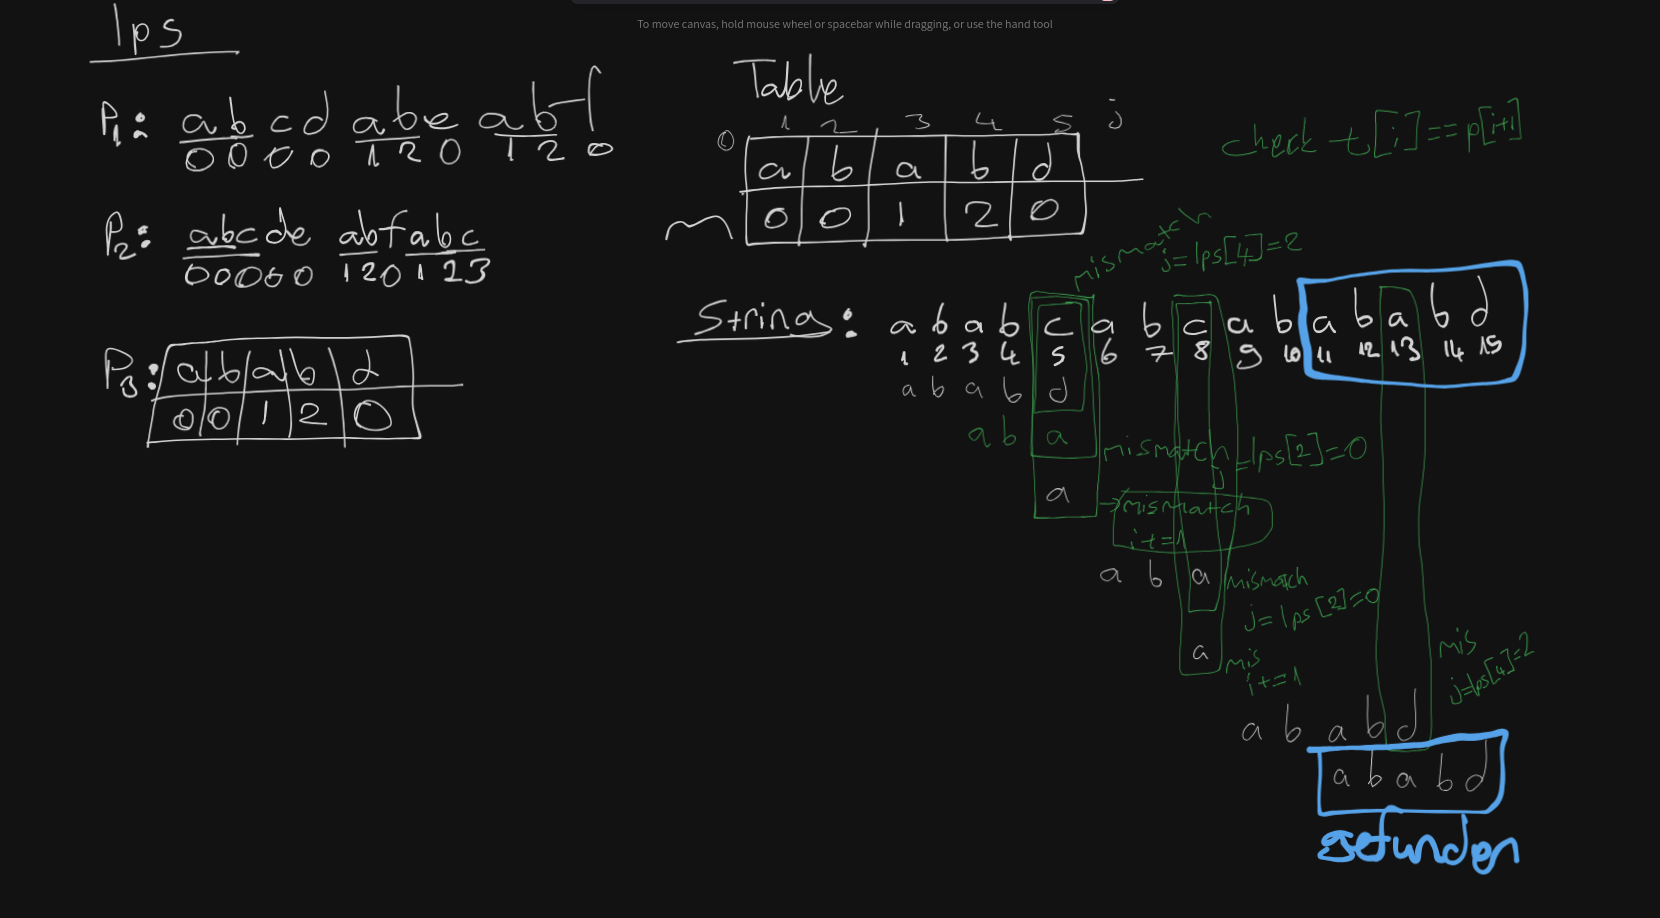 To move canvas, hold mouse wheel or spacebar while dragging, or use the hand tool
lps
P1: a b c d a b e a b f
0 0 0 0 1 2 0 1 2 0
P2: abcde abfabc
00000 120123
P3: a b a b d
0 0 1 2 0
Table
0 1 2 3 4 5 j
a b a b d
0 0 1 2 0
check t[i]==p[i+1]
mismatch
j=lps[4]=2
String: a b a b c a b c a b a b a b d
1 2 3 4 5 6 7 8 9 10 11 12 13 14 15
a b a b d
a b a
mismatch j=lps[2]=0
a
→mismatch
i+=1
a b a
mismatch
j=lps[2]=0
a
mis
i+=1
mis
j=lps[4]=2
a b a b d
a b a b d
gefunden